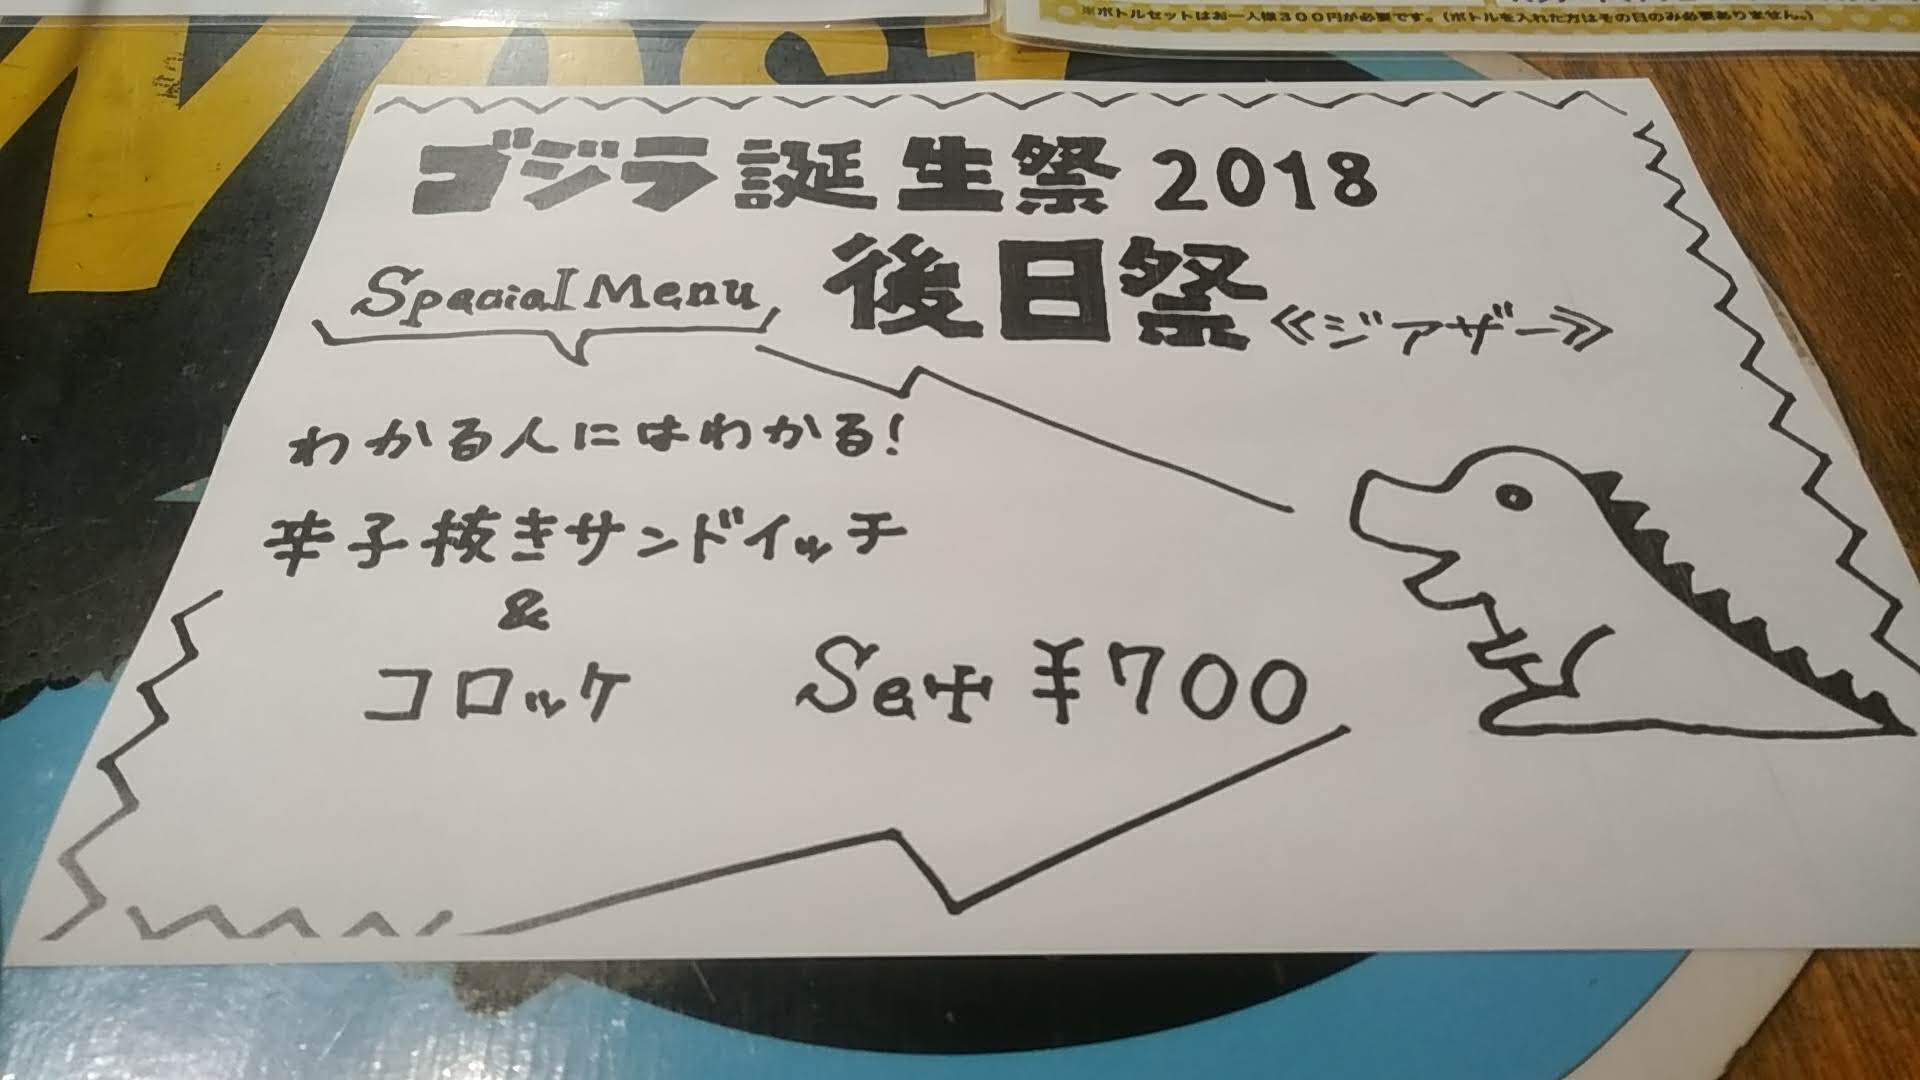 ※ボトルセットはお一人様300円が必要です。(ボトルを入れた方はその日のみ必要ありません。)
ゴジラ誕生祭2018
Special Menu 後日祭≪ジアザー≫
わかる人にはわかる!
辛子抜きサンドイッチ
&
コロッケ Set ¥700